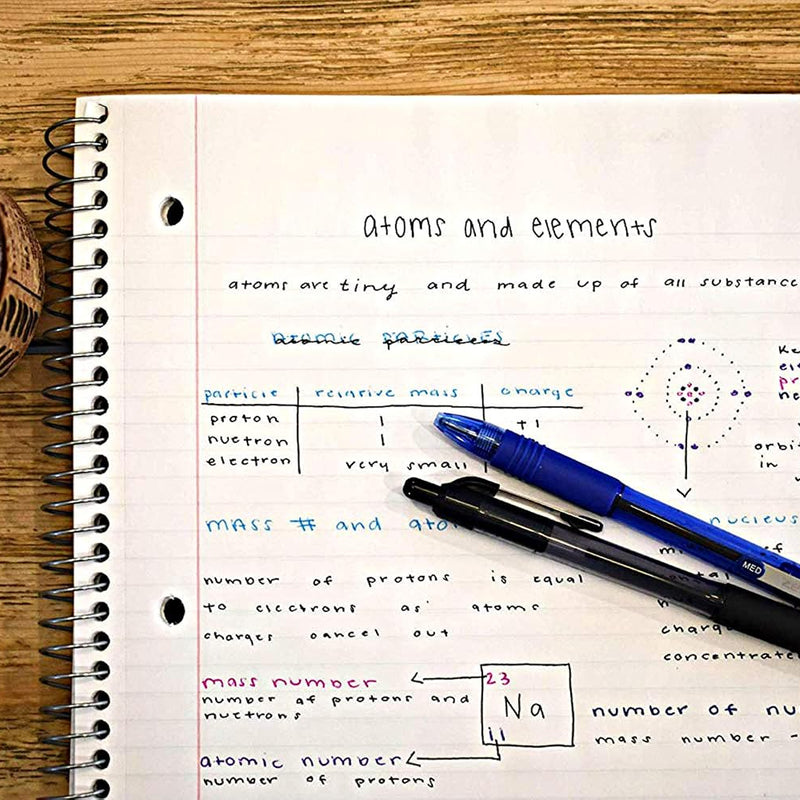 atoms and elements
atoms are tiny and made up of all substance
atomic particles
particle relative mass charge
proton 1 +1
nuetron 1
electron very small
mass # and ato
nucleus
MED
number of protons is equal
to electrons as atoms
charges cancel out
charg
concentrate
mass number 23
number of protons and
nuetrons
Na
number of nu
mass number -
11
atomic number
number of protons
orbi
in